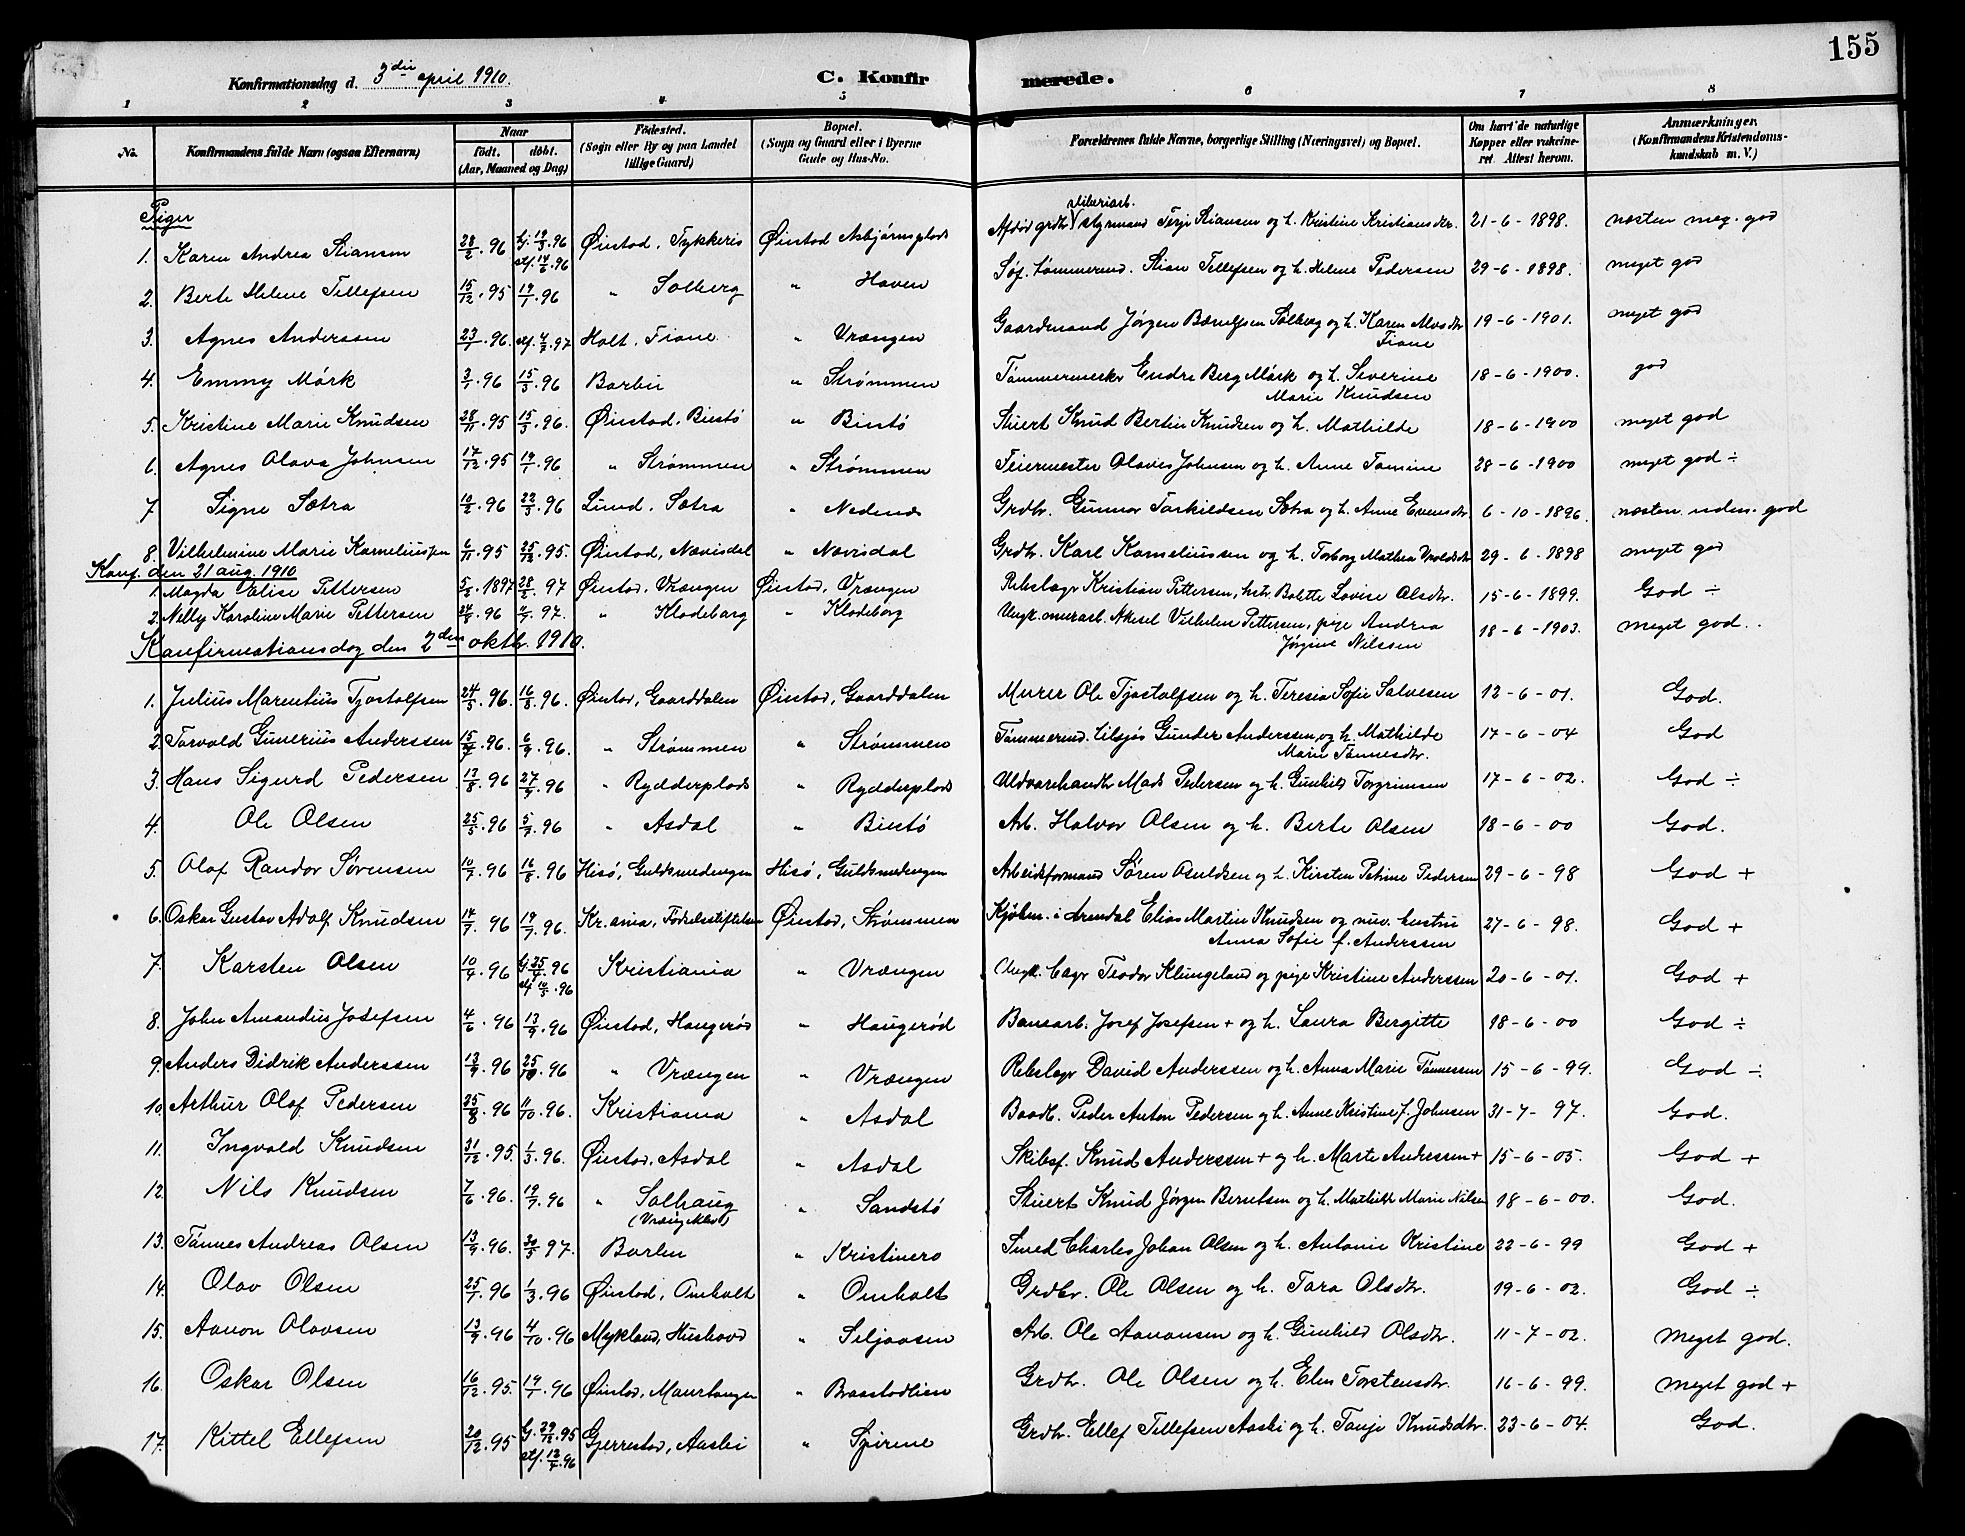 155
Konfirmationsdag d. 3die april 1910. C. Konfirmerede.
1 2 3 4 5 6 7 8
No. Konfirmandens fulde Navn (ogsaa Efternavn) Naar født. døbt. (Aar, Maaned og Dag) Fødested. (Sogn eller By og paa Landet tillige Gaard) Bopæl. (Sogn og Gaard eller i Byerne Gade og Hus-No. Forældrenes fulde Navne, borgerlige Stilling (Næringsvei) og Bopæl. Om havt de naturlige Kopper eller vakcineret. Attest herom. Anmærkninger. (Konfirmandens Kristendomskundskab m. V.)
Piger
1. Karen Andrea Stiansen 28/2.96 hj. 19/3.96 stf. 14/6.96 Øiestad, Tykkeris Øiestad Asbjørnsplads Afdød grdbr. styrmand Terje Stiansen og h. Kristine Kristiansdtr. 21-6-1898. næsten meg. god
2. Berte Helene Tellefsen 15/12.95 19/1.96 " Solberg " Haven Søf. tømmermd. Stian Tellefsen og h. Helene Pedersen 29-6-1898. meget god
3. Agnes Anderssen 23/1.96. stf. 4/7.97 Holt, Fiane " Vrængen Gaardmand Jørgen Solberg og h. Karen Fiane 19-6-1901. meget god
4. Emmy Mørk 3/1.96 15/3.96 Barbu " Strømmen Tømmermester Endre Berg Mørk og h. Severine Marie Knudsen 18-6-1900. god
5. Kristine Marie Knudsen 28/11.95 15/3.96. Øiestad, Biestø " Biestø Stuert Knud Bertin Knudsen og h. Mathilde 18-6-1900 meget god
6. Agnes Olava Johnsen 17/12.95 19/1.96 " Strømmen " Strømmen Feiermester Olavus Johnsen og h. Anne Tomine 28-6-1900 meget god ÷
7. Signe Sætra 10/2.96 22/3.96 Lund, Sætra " Nedenes Grdbr. Gunnar Tarkildsen Sætra og h. Anne Evensdtr 6-10-1896. næsten uden. god
8. Vilhelmine Marie Korneliussen 6/11.95 25/12.95. Øiestad, Nævisdal " Nævisdal Grdbr. Karl Korneliussen og h. Torborg Mathea 29-6-1898 meget god
Konf. den 21 aug. 1910
1. Magda Elise Pettersen 5/2.1897 28/2.97 Øiestad, Vrængen Øiestad, Vrængen Rebslagr Kristian Pettersen, hstr. Bolette Lovise Olsdtr. 15-6-1899. God ÷
2. Nelly Karoline Marie Pettersen 24/8.96 97. " Klodeborg " Klodeborg Ungk. murarb. Aksel Vilhelm Pettersen, pige Andrea Jørgine Nilssen 18-6-1903. meget god.
Konfirmationsdag den 2den oktbr. 1910.
1. Julius Marentius Tjostolfsen 24/5.96. 16/8.96. Øiestad, Gaarddalen Øiestad, Gaarddalen Murer Ole Tjostolfsen og h. Teresia Sofie Salvesen 12-6-01. God.
2. Torvald Gunerius Anderssen 15/7.96. 6/9.96. " Strømmen " Strømmen Tømmermd. tilsjøs Gunder Anderssen, og h. Mathilde Marie Tønnesdtr. 17-6-04 God
3. Hans Sigurd Pedersen 13/8.96 27/9.96 " Rydderplads " Rydderplads Uldvarehandlr Mads Pedersen og h. Gunhild Torgrimsen 17-6-02. God ÷
4. Ole Olsen 25/5.96 5/7.96 " Asdal " Biestø Arb. Halvor Olsen og h. Berte Olsen 18-6-00 God.
5. Olaf Randor Sørensen 10/7.96 16/8.96 Hisø, Guldsmedengen Hisø, Guldsmedengen Arbeidsformand Søren Osuldsen og h. Kirsten Petrine Pedersen 29-6-98 God +
6. Oskar Gustav Adolf Knudsen 14/7.96 19/7.96. Kr.ania, Fødselsstiftelsen Øiestad, Strømmen Kjøbm. i Arendal Elias Martin Knudsen og nuv. hustru Anna Sofie f. Anderssen 27-6-98. God +
7. Karsten Olsen 10/4.96 hj. 25/4.96 stf 10/5.96 Kristiania " Vrængen Ungk. bagr Teodor Klungeland og pige Kristine Anderssen 20-6-01. God +
8. John Amandus Josefsen 4/6.96 13/9.96 Øiestad, Haugerød " Haugerød Banearb. Josef Josefsen + og h. Laura Bergitte 18-6-00 God ÷
9. Anders Didrik Anderssen 13/9.96 25/10.96 " Vrængen " Vrængen Rebslagr David Anderssen og h. Anna Marie Tønnessen 15-6-99. God ÷
10. Arthur Olaf Pedersen 25/8.96 11/10.96. Kristiania " Asdal Baadb. Peder Anton Pedersen og h. Anne Kristine f. Johnsen 31-7-97. God.
11. Ingvald Knudsen 31/12.95. 1/3.96. Øiestad, Asdal " Asdal Skibsf. Knud Anderssen + og h. Marte Anderssen + 15-6-05. God +
12. Nils Knudsen 7/6.96. 19/7.96 " Solhaug " Sandstø Stuert Knud Jørgen Berntsen og h. Mathilde Marie Nilsen 18-6-00. God.
13. Tønnes Andreas Olsen 13/9.96. 30/5.97. Barbu " Kristinero Smed Charles Johan Olsen og h. Antonie Kristine 22-6-99 God +
14. Olav Olsen 25/1.96 1/3.96 Øiestad, Omholt " Omholt Grdbr. Ole Olsen og h. Tara Olsdtr. 19-6-02. God ÷
15. Aanon Olavsen 13/9.96 4/10.96 Mykland, Hushovd " Seljaasen Arb. Ole Aanonsen og h. Gunhild Olsdtr. 11-7-02. Meget god.
16. Oskar Olsen 16/12.95. 19/1.96 Øiestad, Maurtangen " Braastadlien Grdbr. Ole Olsen og h. Elen Torstensdtr. 16-6-99. meget god +
17. Kittel Ellefsen 20/12.95 hj. 29/12.95 stf. 12/4.96 Gjerrestad, Aasbi " Spirene Grdbr. Ellef Tellefsen Aasbi og h. Tanje Knudsdtr. 23-6-04. God.